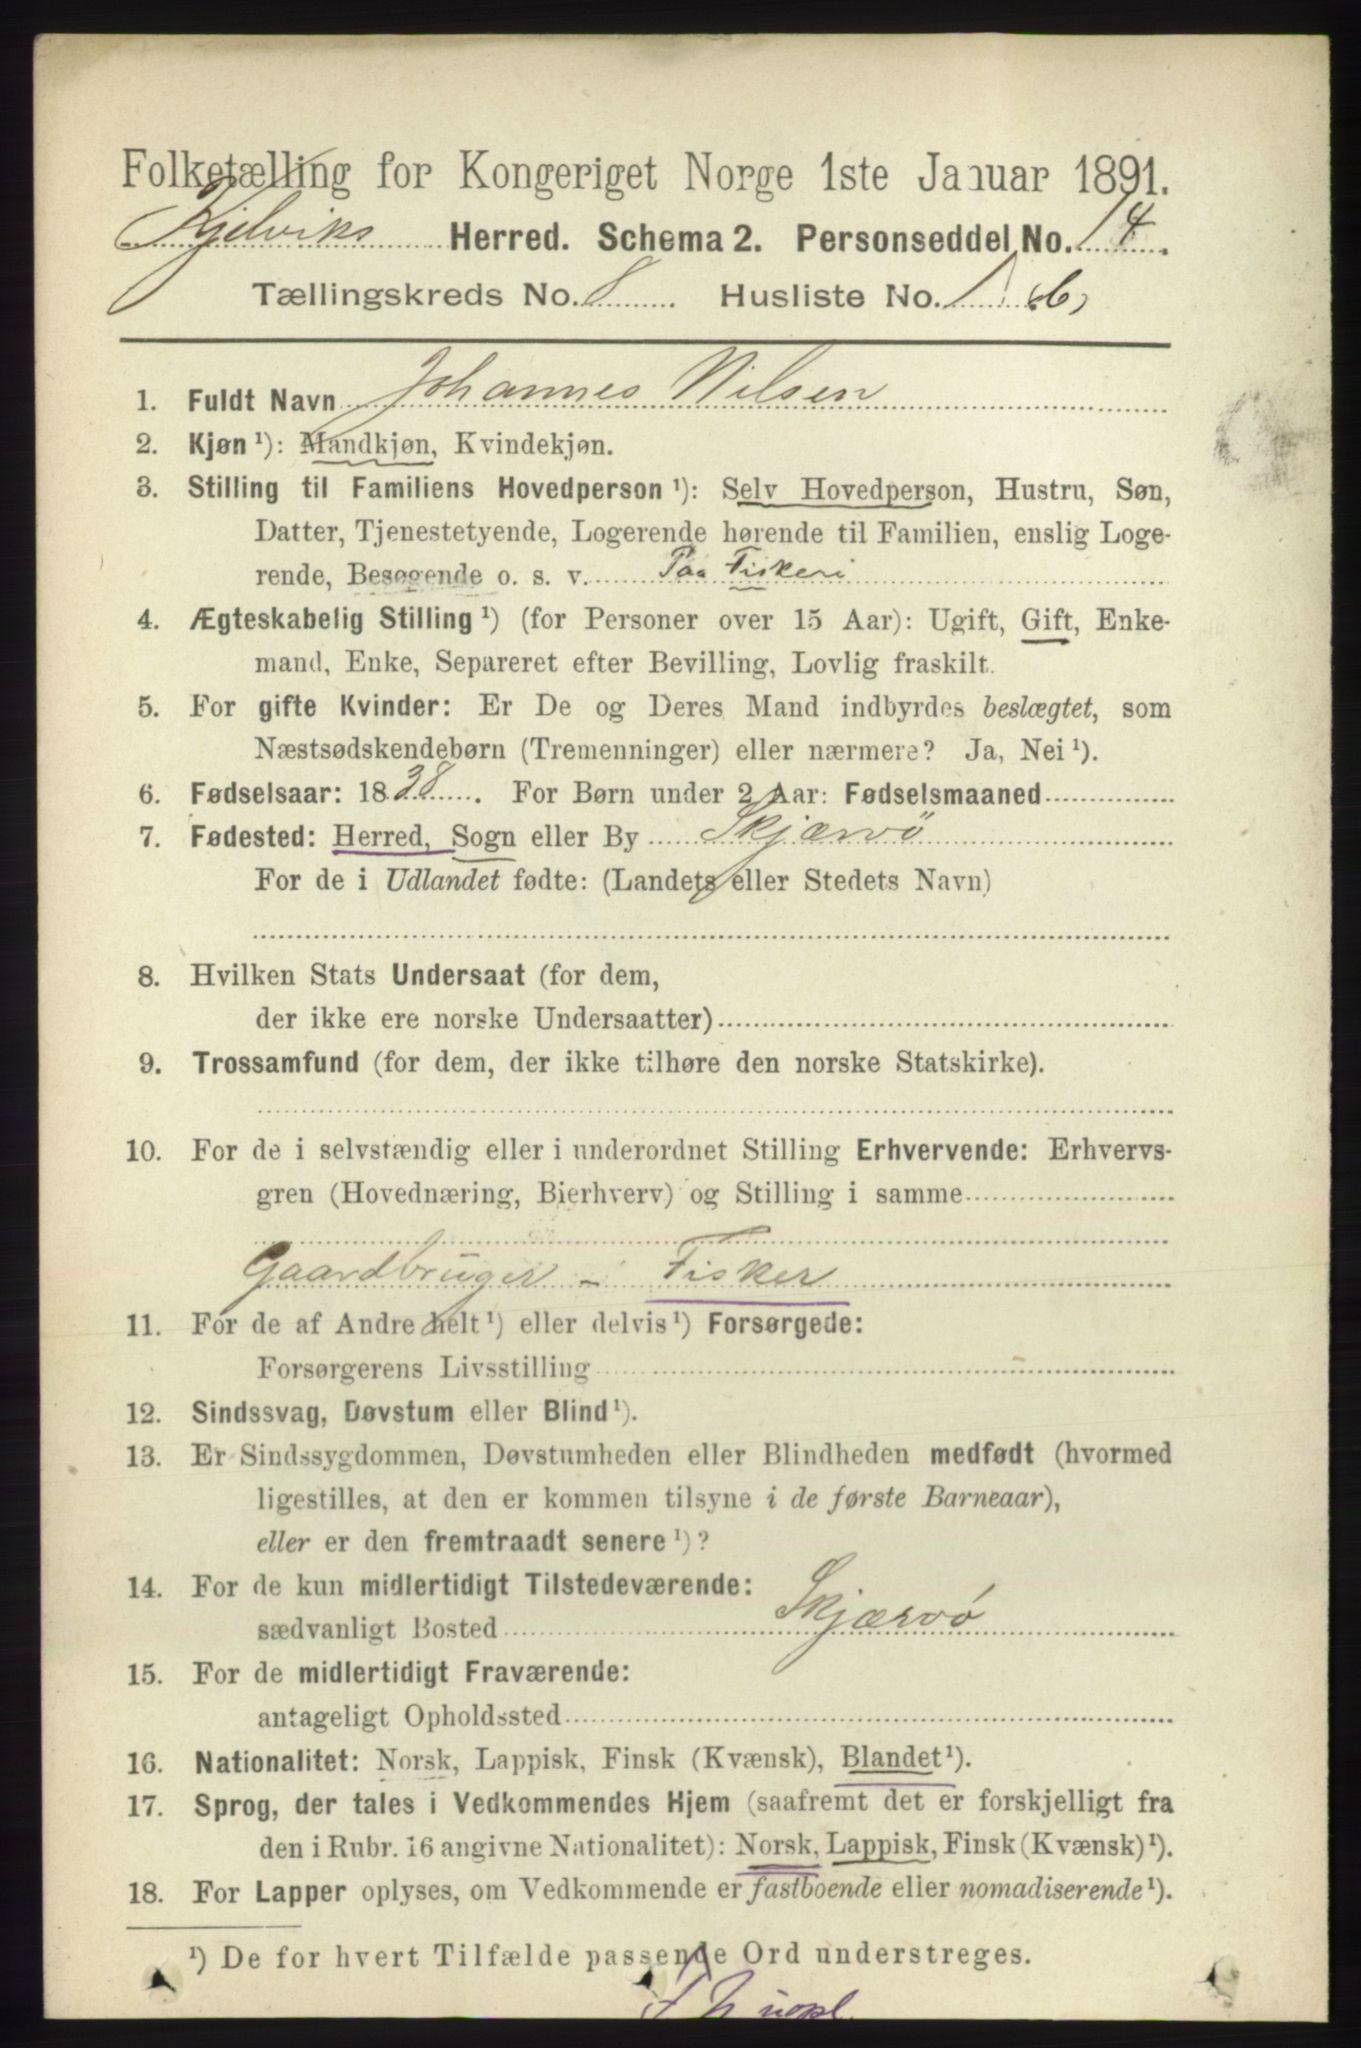 Folketælling for Kongeriget Norge 1ste Januar 1891.
Kjelviks Herred. Schema 2. Personseddel No. 14.
Tællingskreds No. 8 Husliste No. 1 b,
1. Fuldt Navn Johannes Nilsen
2. Kjøn ¹): Mandkjøn, Kvindekjøn.
3. Stilling til Familiens Hovedperson ¹): Selv Hovedperson, Hustru, Søn,
Datter, Tjenestetyende, Logerende hørende til Familien, enslig Loge-
rende, Besøgende o. s. v. Paa Fiskeri
4. Ægteskabelig Stilling ¹) (for Personer over 15 Aar): Ugift, Gift, Enke-
mand, Enke, Separeret efter Bevilling, Lovlig fraskilt.
5. For gifte Kvinder: Er De og Deres Mand indbyrdes beslægtet, som
Næstsødskendebørn (Tremenninger) eller nærmere? Ja, Nei ¹).
6. Fødselsaar: 1838. For Børn under 2 Aar: Fødselsmaaned
7. Fødested: Herred, Sogn eller By Skjærvö
For de i Udlandet fødte: (Landets eller Stedets Navn)
8. Hvilken Stats Undersaat (for dem,
der ikke ere norske Undersaatter)
9. Trossamfund (for dem, der ikke tilhøre den norske Statskirke).
10. For de i selvstændig eller i underordnet Stilling Erhvervende: Erhvervs-
gren (Hovednæring, Bierhverv) og Stilling i samme
Gaardbruger - Fisker
11. For de af Andre helt ¹) eller delvis ¹) Forsørgede:
Forsørgerens Livsstilling
12. Sindssvag, Døvstum eller Blind ¹).
13. Er Sindssygdommen, Døvstumheden eller Blindheden medfødt (hvormed
ligestilles, at den er kommen tilsyne i de første Barneaar),
eller er den fremtraadt senere ¹)?
14. For de kun midlertidigt Tilstedeværende:
sædvanligt Bosted Skjærvö
15. For de midlertidigt Fraværende:
antageligt Opholdssted
16. Nationalitet: Norsk, Lappisk, Finsk (Kvænsk), Blandet ¹).
17. Sprog, der tales i Vedkommendes Hjem (saafremt det er forskjelligt fra
den i Rubr. 16 angivne Nationalitet): Norsk, Lappisk, Finsk (Kvænsk) ¹).
18. For Lapper oplyses, om Vedkommende er fastboende eller nomadiserende ¹).
¹) De for hvert Tilfælde passende Ord understreges.